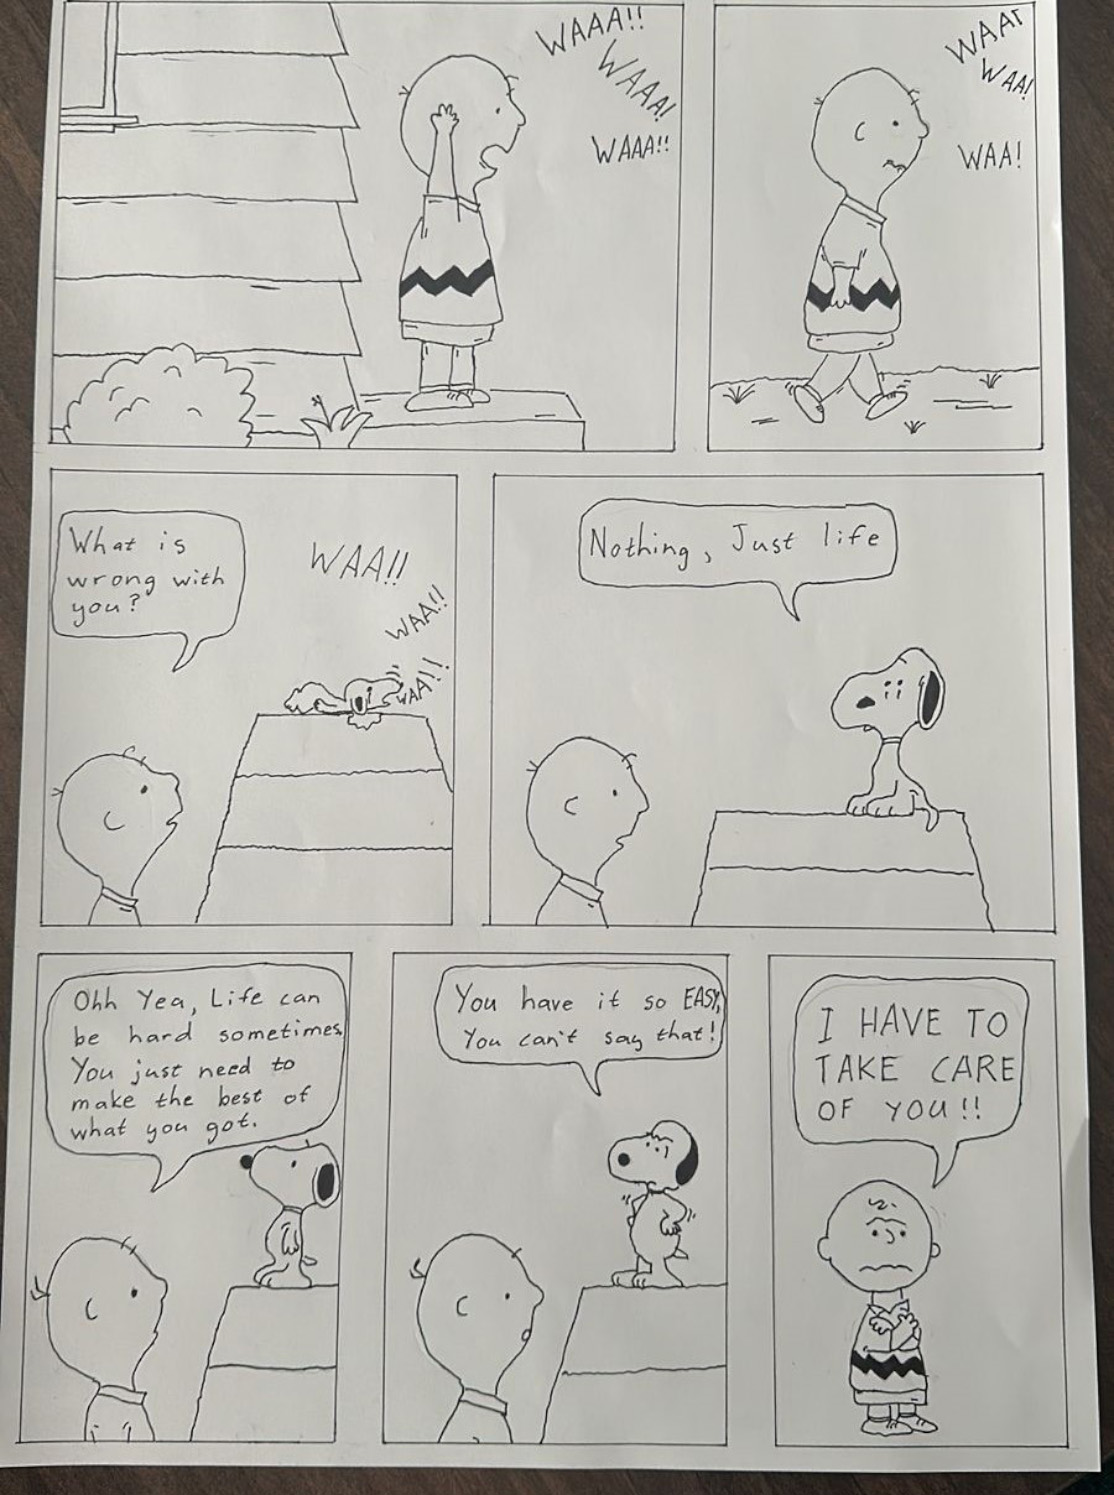 WAAA!!
WAAA!
WAAA!!
WAA!
WAA!
What is
wrong with
you?
WAA!!
WAA!!
WAA!!
Nothing, Just life
Ohh Yea, Life can
be hard sometimes.
You just need to
make the best of
what you got.
You have it so EASY,
You can't say that!
I HAVE TO
TAKE CARE
OF YOU!!